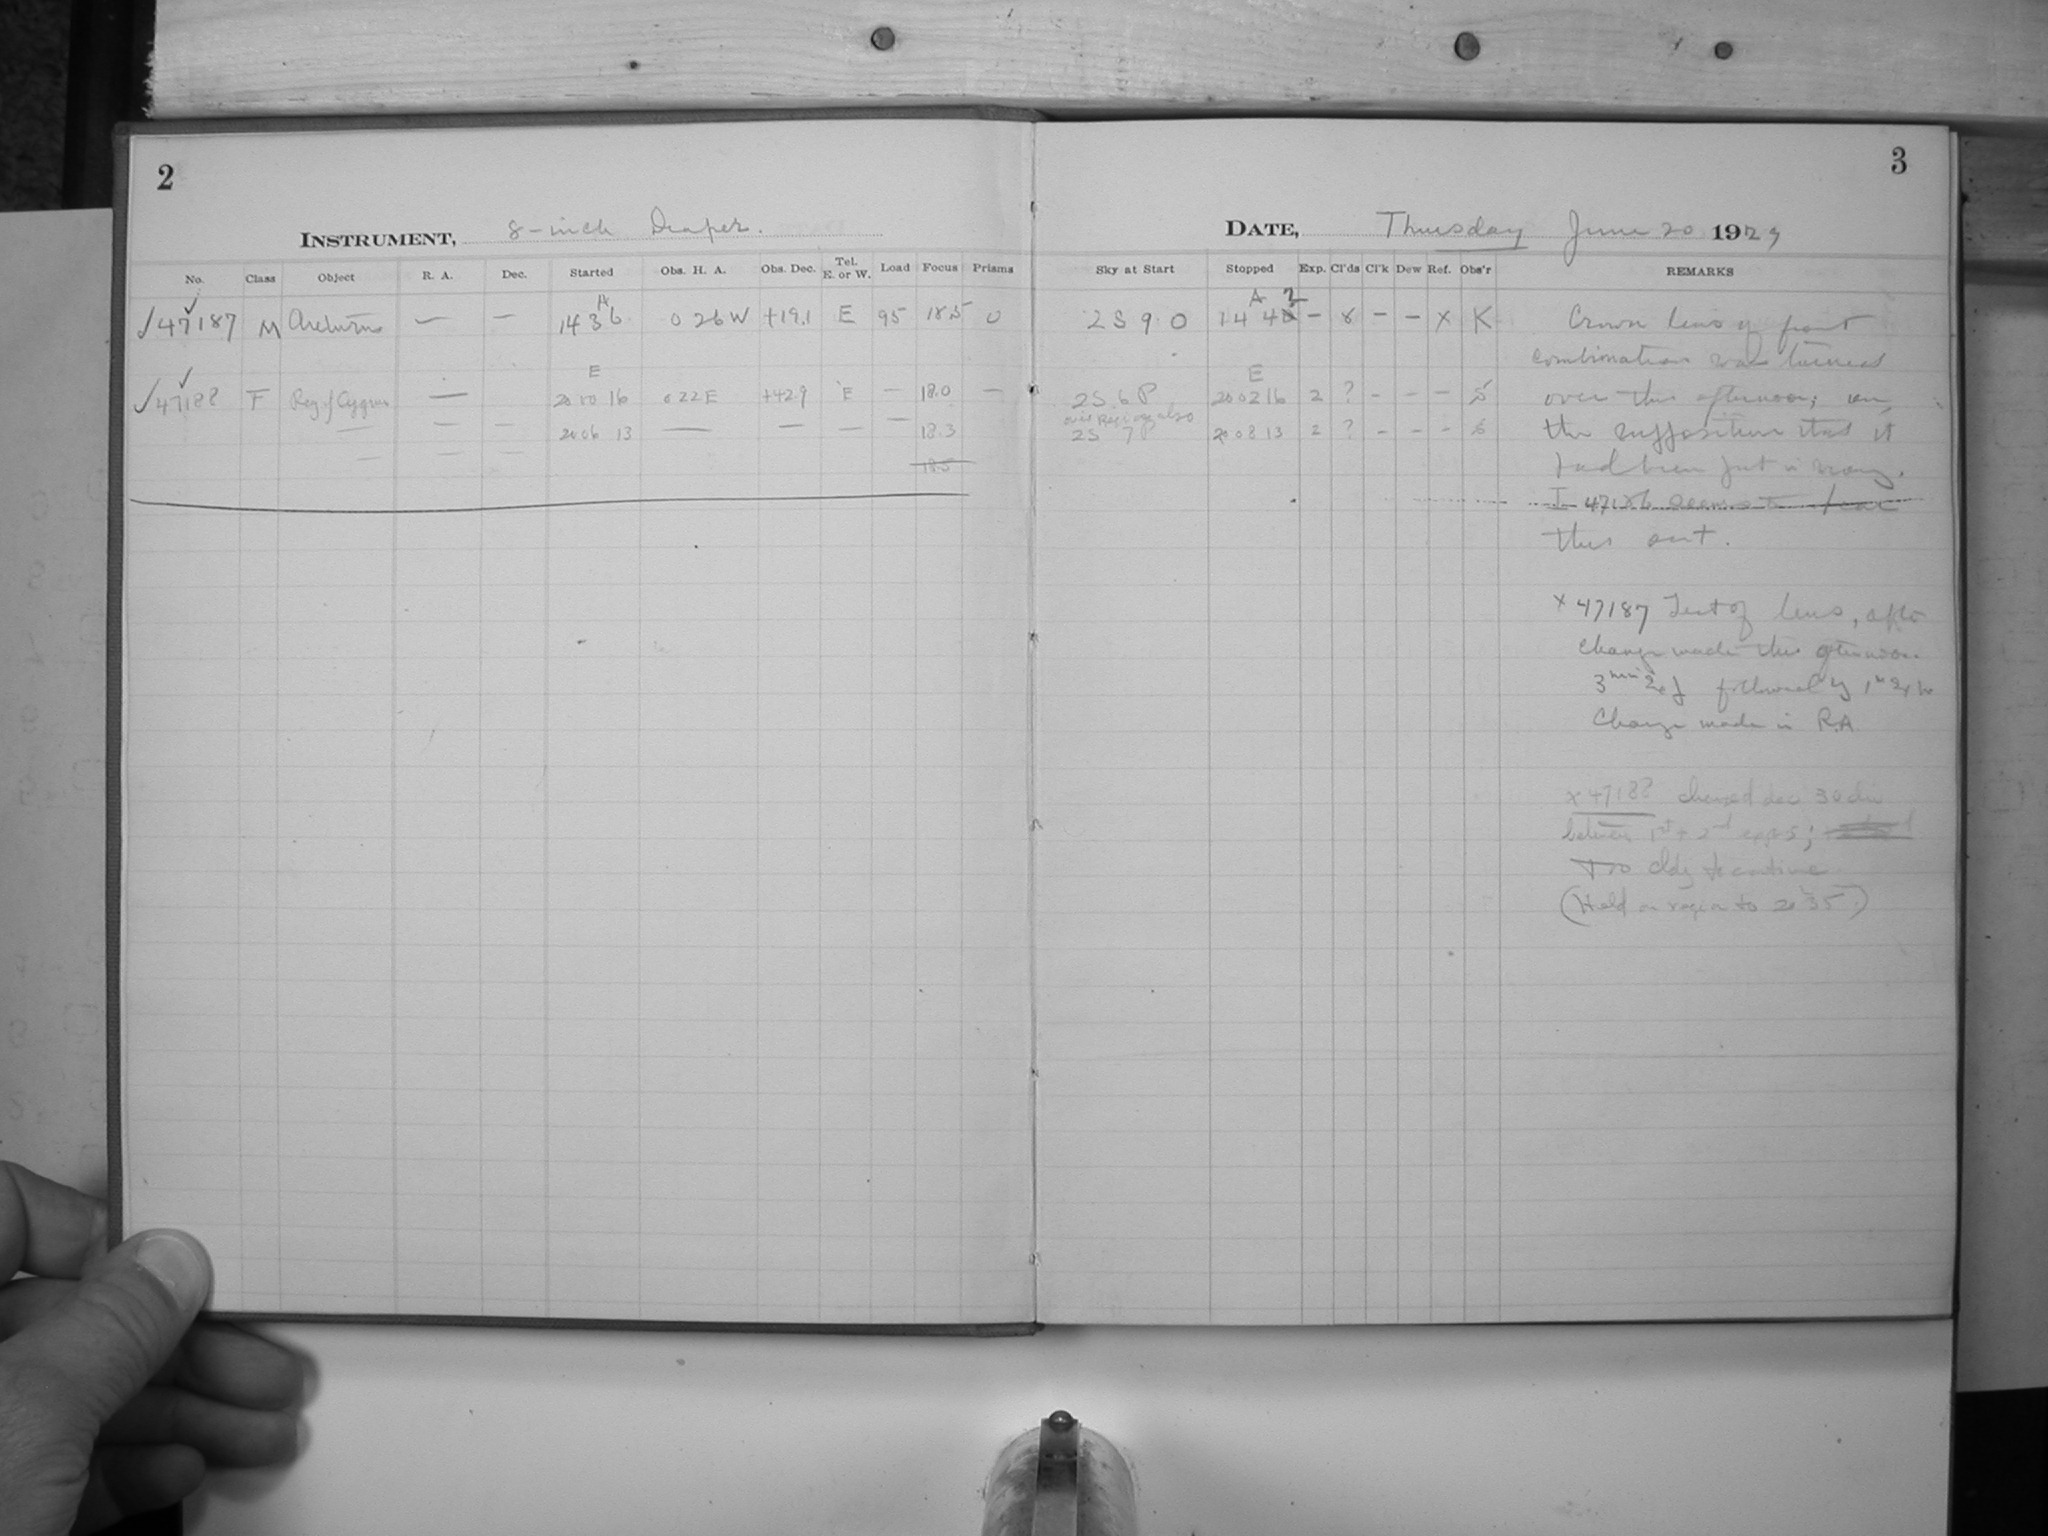 2
INSTRUMENT, 8-inch Draper.
No. Class Object R. A. Dec. Started Obs. H. A. Obs. Dec. Tel. E. or W. Load Focus Prisms
√ 47187 M Arcturus — — A 14 36 0 26 W +19.1 E 95 18.5 0
√ 47188 F Reg. of Cygnus — E 20 00 16 0 22 E +42.9 E — 18.0 —
— — — 20 06 13 — — — — 18.3
— — — 18.5
3
DATE, Thursday June 20 1929
Sky at Start Stopped Exp. Cl'ds Cl'k Dew Ref. Obs'r REMARKS
2 S 9 0 A 14 42 — 8 — — X K
2 S 6 P E 20 02 16 2 ? - - - S
over Region also
2 S 7 P 20 08 13 2 ? - - - S
Crown lens of front
combination was turned
over this afternoon; on
the supposition that it
had been put in wrong.
I 47186 seems to bear
this out.
x 47187 Test of lens, after
change made this afternoon.
3 min followed by 1
Change made in R.A.
x 47188 changed dec 30
between 1st & 2nd exps;
Too cldy to continue
(Held on region to 20 35)